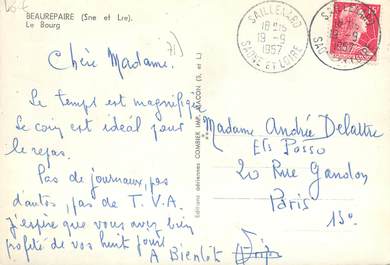 BEAUREPAIRE (Sne et Lre).
Le Bourg
71)
SAILLENARD
18H15
19-9
1957
SAONE ET LOIRE
18H15
19-9
1957
SAONE ET LOIRE
15
Chère Madame.
Le temps est magnifique
Le coin est idéal pour
le repos.
Pas de journaux, pas
d'autos, pas de T.V.A.
j'espère que vous avez bien
profité de vos huit jours
A Bientôt
Editions aériennes COMBIER IMP. MACON (S. et L.)
Madame André Delattre
Ets Posso
20 Rue Gandon
Paris
13e